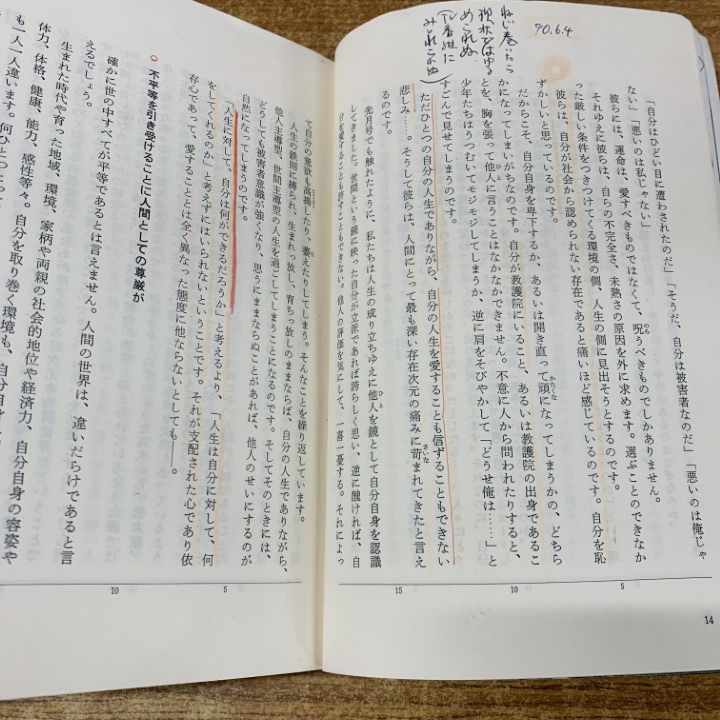 90.6.4
「自分はひどい目に遭わされたのだ」「そうだ、自分は被害者なのだ」「悪いのは俺じゃ
ない」「悪いのは私じゃない」
彼らには、運命は、愛すべきものではなくて、呪うべきものでしかありません。
それゆえに彼らは、自らの不完全さ、未熟さの原因を外に求めます。選ぶことのできなか
った厳しい条件をつきつけてくる環境の側、人生の側に見出そうとするのです。
彼らは、自分が社会から認められない存在であると痛いほど感じているのです。自分を恥
ずかしいと思っているのです。
だからこそ、自分自身を卑下するか、あるいは開き直って頑になってしまうかの、どちら
かになってしまいがちなのです。自分が教護院にいること、あるいは教護院の出身であるこ
とを、胸を張って他人に言うことはなかなかできません。不意に人から問われたりすると、
少年たちはうつむいてモジモジしてしまうか、逆に肩をそびやかして「どうせ俺は……」と
すごんで見せてしまうのです。
ただひとつの自分の人生でありながら、自分の人生を愛することも信ずることもできない
悲しみ――。そうして彼らは、人間にとって最も深い存在次元の痛みに苛まれてきたと言え
るのです。
先月号でも触れたように、私たちは人生の成り立ちゆえに他人を鏡として自分自身を認識
してきました。世間という鏡に映った自分が立派であれば誇らしく思い、逆に醜ければ、自
分を愛することも許すこともできない。他人の評価を気にして、一喜一憂する。それによっ
14
て自分の意欲も高揚したり、萎えたりしてしまう。そんなことを繰り返しています。
人生の鉄則に縛られ、生まれっ放し、育ちっ放しのままならば、自分の人生でありながら、
他人主導型、世間主導型の人生を過ごしてしまうことになるのです。そしてそのときには、
どうしても被害者意識が強くなり、思うにままならぬことがあれば、他人のせいにするのが
自然になってしまうのです。
「人生に対して、自分は何ができるだろうか」と考えるより、「人生は自分に対して、何
をしてくれるのか」と考えずにはいられないということです。それが支配された心であり依
存心であって、愛することとは全く異なった態度に他ならないとしても――。
○ 不平等を引き受けることに人間としての尊厳が
確かに世の中すべてが平等であるとは言えません。人間の世界は、違いだらけであると言
えるでしょう。
生まれた時代や育った地域、環境、家柄や両親の社会的地位や経済力、自分自身の容姿や
体力、体格、健康、能力、感性等々。自分を取り巻く環境も、自分自身
も一人一人違います。何ひとつ